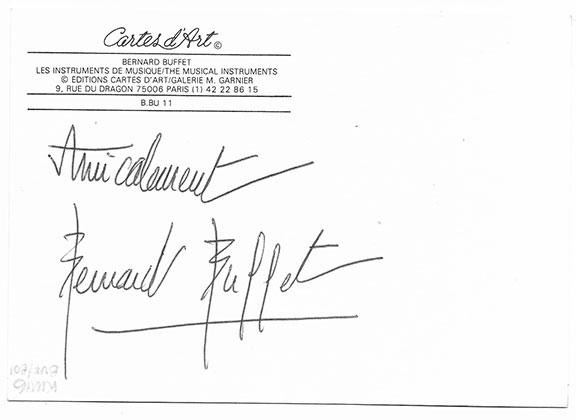 Cartes d'Art ©
BERNARD BUFFET
LES INSTRUMENTS DE MUSIQUE/THE MUSICAL INSTRUMENTS
© EDITIONS CARTES D'ART/GALERIE M. GARNIER
9, RUE DU DRAGON 75006 PARIS (1) 42 22 86 15
B.BU 11
Amicalement
Bernard Buffet